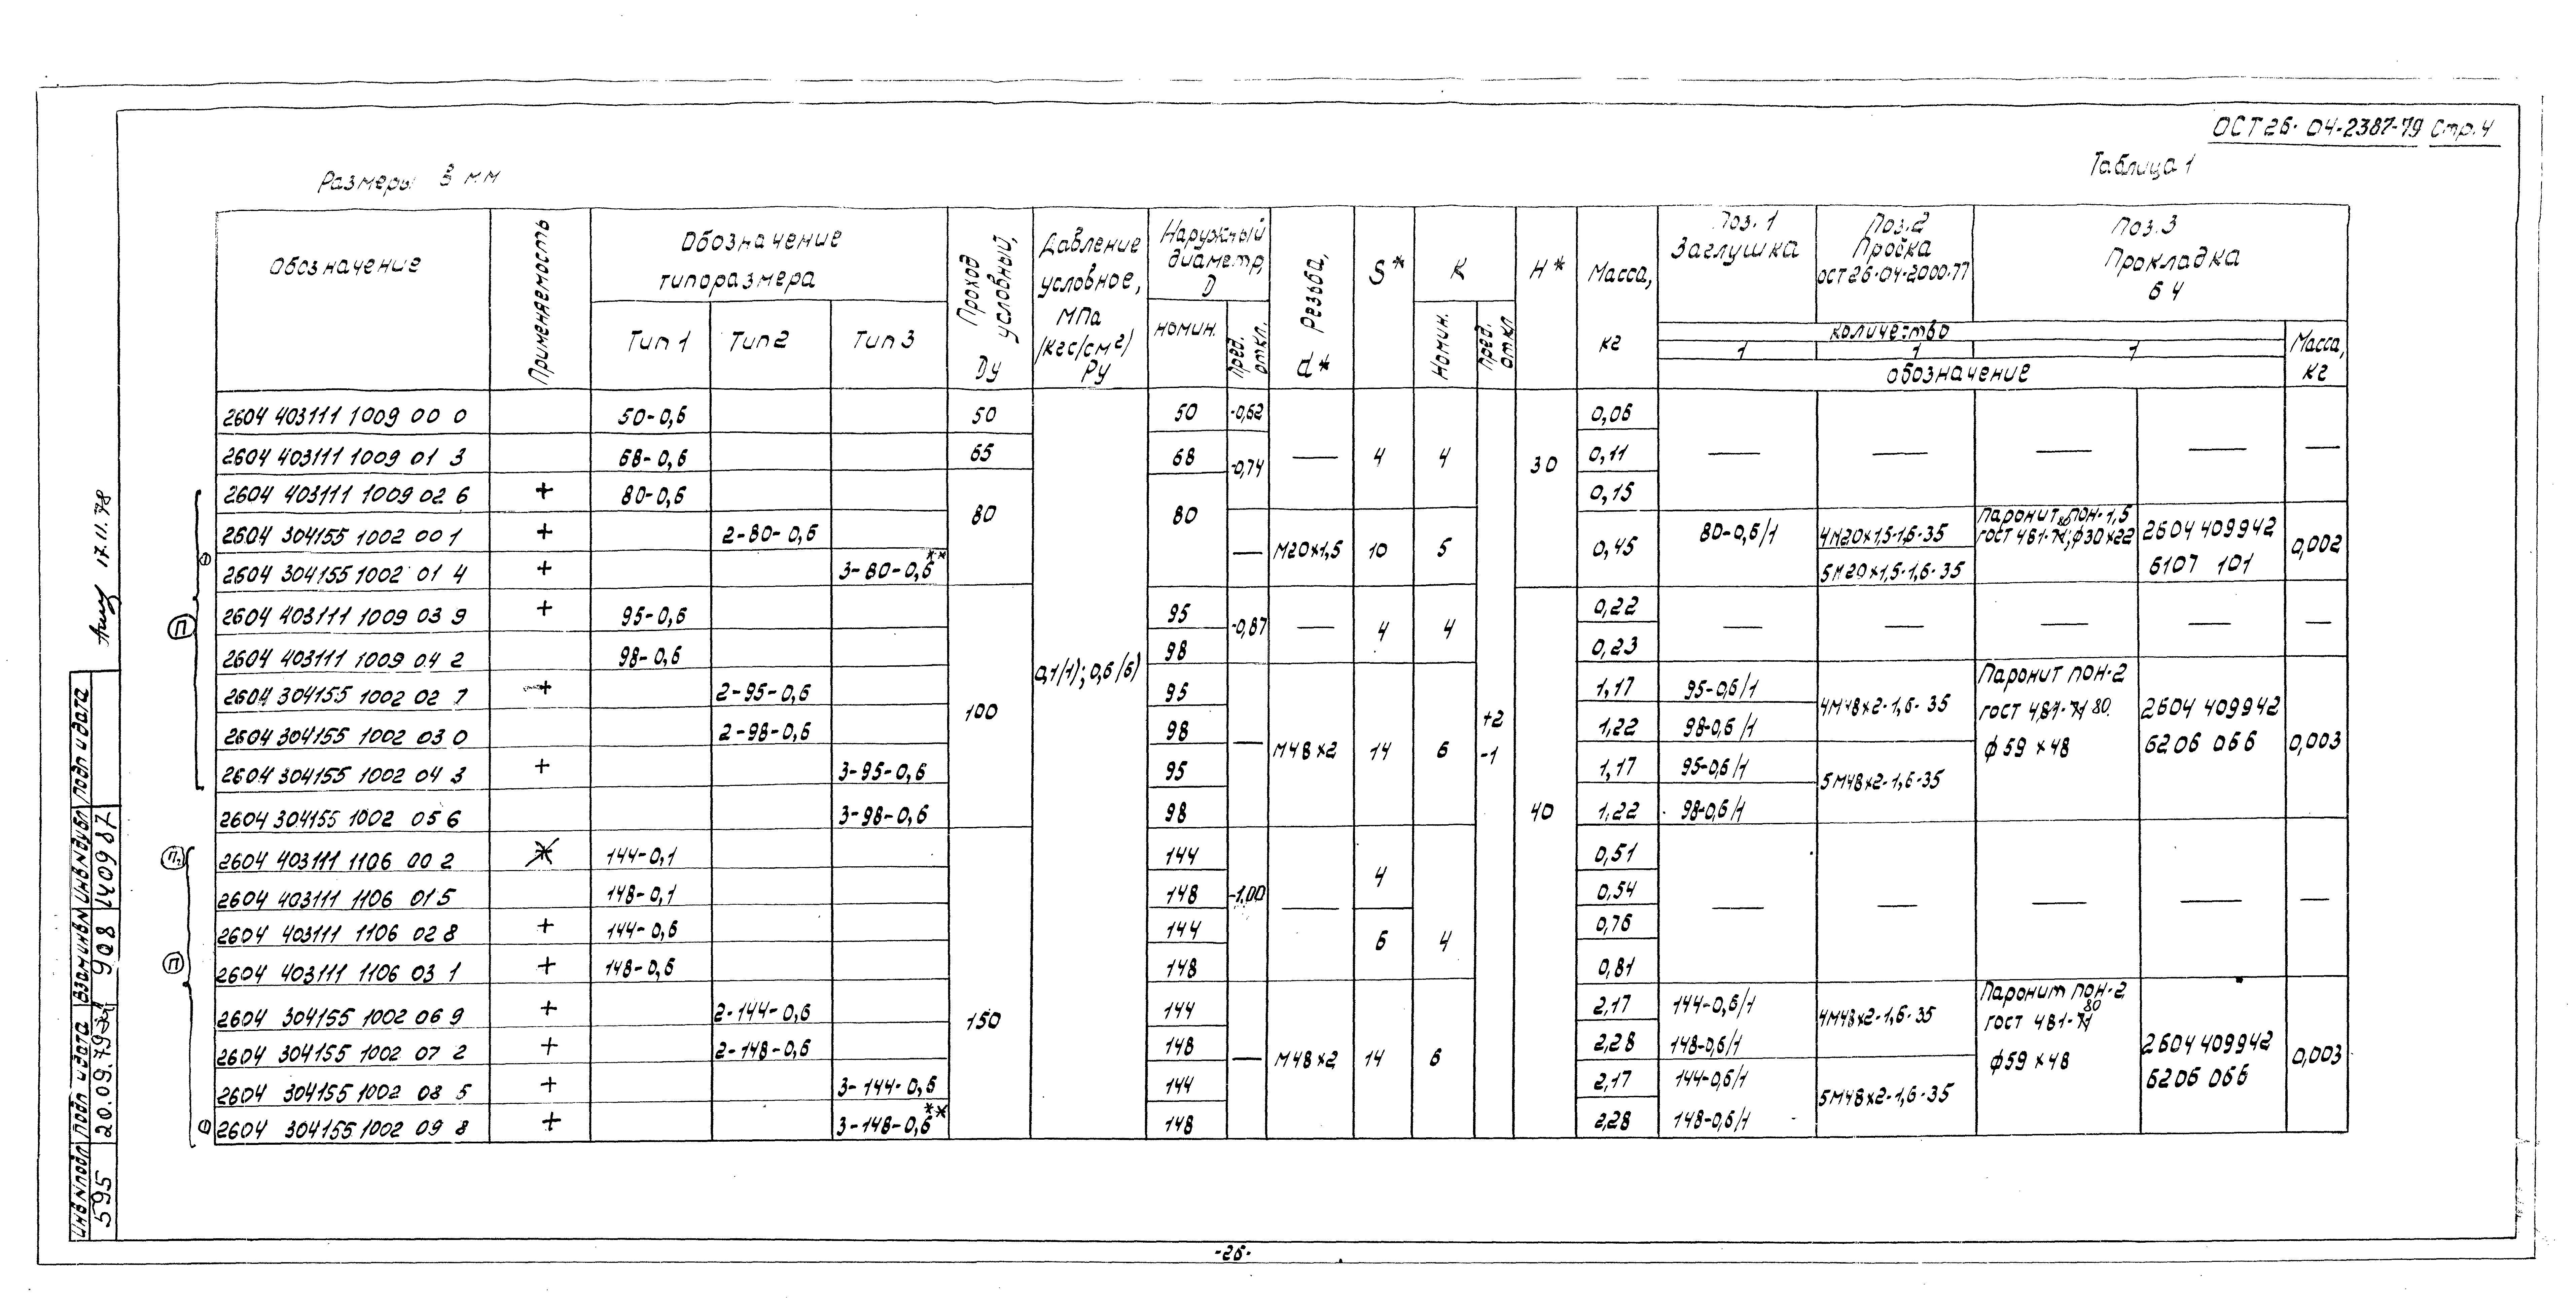 ОСТ 26-04-2387-79 Стр. 4
Таблица 1
Размеры в мм
Обозначение
Применяемость
Обозначение типоразмера
Тип 1 Тип 2 Тип 3
Проход условный, Dу
Давление условное, МПа /кгс/см²/ Ру
Наружный диаметр, D
номин. пред. откл.
Резьба, d*
S*
K
Номин. пред. откл
H*
Масса, кг
Поз. 1 Заглушка
Поз. 2 Пробка ОСТ 26-04-2000-77
Поз. 3 Прокладка Б4
количество
1 1 1
обозначение
Масса, кг
2604 403111 1009 00 0 50-0,6 50 50 -0,62 0,06
2604 403111 1009 01 3 68-0,6 65 68 -0,74 — 4 4 30 0,11 — — — — —
2604 403111 1009 02 6 + 80-0,6 80 80 0,15
2604 304155 1002 00 1 + 2-80-0,6 — М20×1,5 10 5 0,45 80-0,6/1 4М20×1,5-1,6-35 Паронит ПОН-1,5 ГОСТ 481-71 80; ф30×22 2604 409942 6107 101 0,002
2604 304155 1002 01 4 + 3-80-0,6** 5М20×1,5-1,6-35
2604 403111 1009 03 9 + 95-0,6 95 -0,87 — 4 4 0,22 — — — — —
2604 403111 1009 04 2 98-0,6 98 0,23
0,1/1); 0,6/6)
2604 304155 1002 02 7 + 2-95-0,6 100 95 1,17 95-0,6/1 4М48×2-1,6-35 Паронит ПОН-2
2604 304155 1002 03 0 2-98-0,6 98 — М48×2 14 6 +2 -1 1,22 98-0,6/1 ГОСТ 481-71 80 2604 409942
2604 304155 1002 04 3 + 3-95-0,6 95 1,17 95-0,6/1 5М48×2-1,6-35 ф59×48 6206 066 0,003
2604 304155 1002 05 6 3-98-0,6 98 40 1,22 98-0,6/1
2604 403111 1106 00 2 144-0,1 144 4 0,51
2604 403111 1106 01 5 148-0,1 148 -1,00 — 0,54 — — — — —
2604 403111 1106 02 8 + 144-0,6 144 6 4 0,76
2604 403111 1106 03 1 + 148-0,6 148 0,81
2604 304155 1002 06 9 + 2-144-0,6 150 144 2,17 144-0,6/1 4М48×2-1,6-35 Паронит ПОН-2 ГОСТ 481-71 80
2604 304155 1002 07 2 + 2-148-0,6 148 — М48×2 14 6 2,28 148-0,6/1 ф59×48 2604 409942 0,003
2604 304155 1002 08 5 + 3-144-0,6 144 2,17 144-0,6/1 5М48×2-1,6-35 6206 066
2604 304155 1002 09 8 + 3-148-0,6** 148 2,28 148-0,6/1
17.11.78
П
П₂
П
Инв N подл Подп и дата Взам инв N Инв N дубл Подп и дата
595 20.09.79 908 140987
-26-